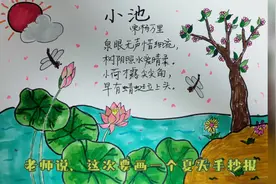 小池
宋杨万里
泉眼无声惜细流，
树阴照水爱晴柔。
小荷才露尖尖角，
早有蜻蜓立上头。
老师说，这次要画一个夏天手抄报